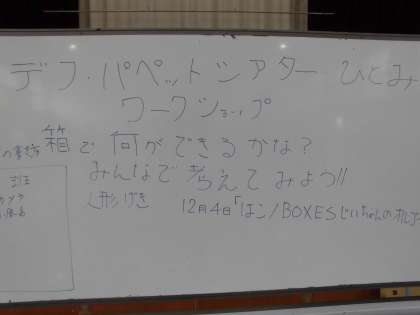 デフ・パペットシアター ひとみ
ワークショップ
箱で何ができるかな?
みんなで考えてみよう!!
人形げき 12月4日「はこ/BOXESじいちゃんのオルゴ
班